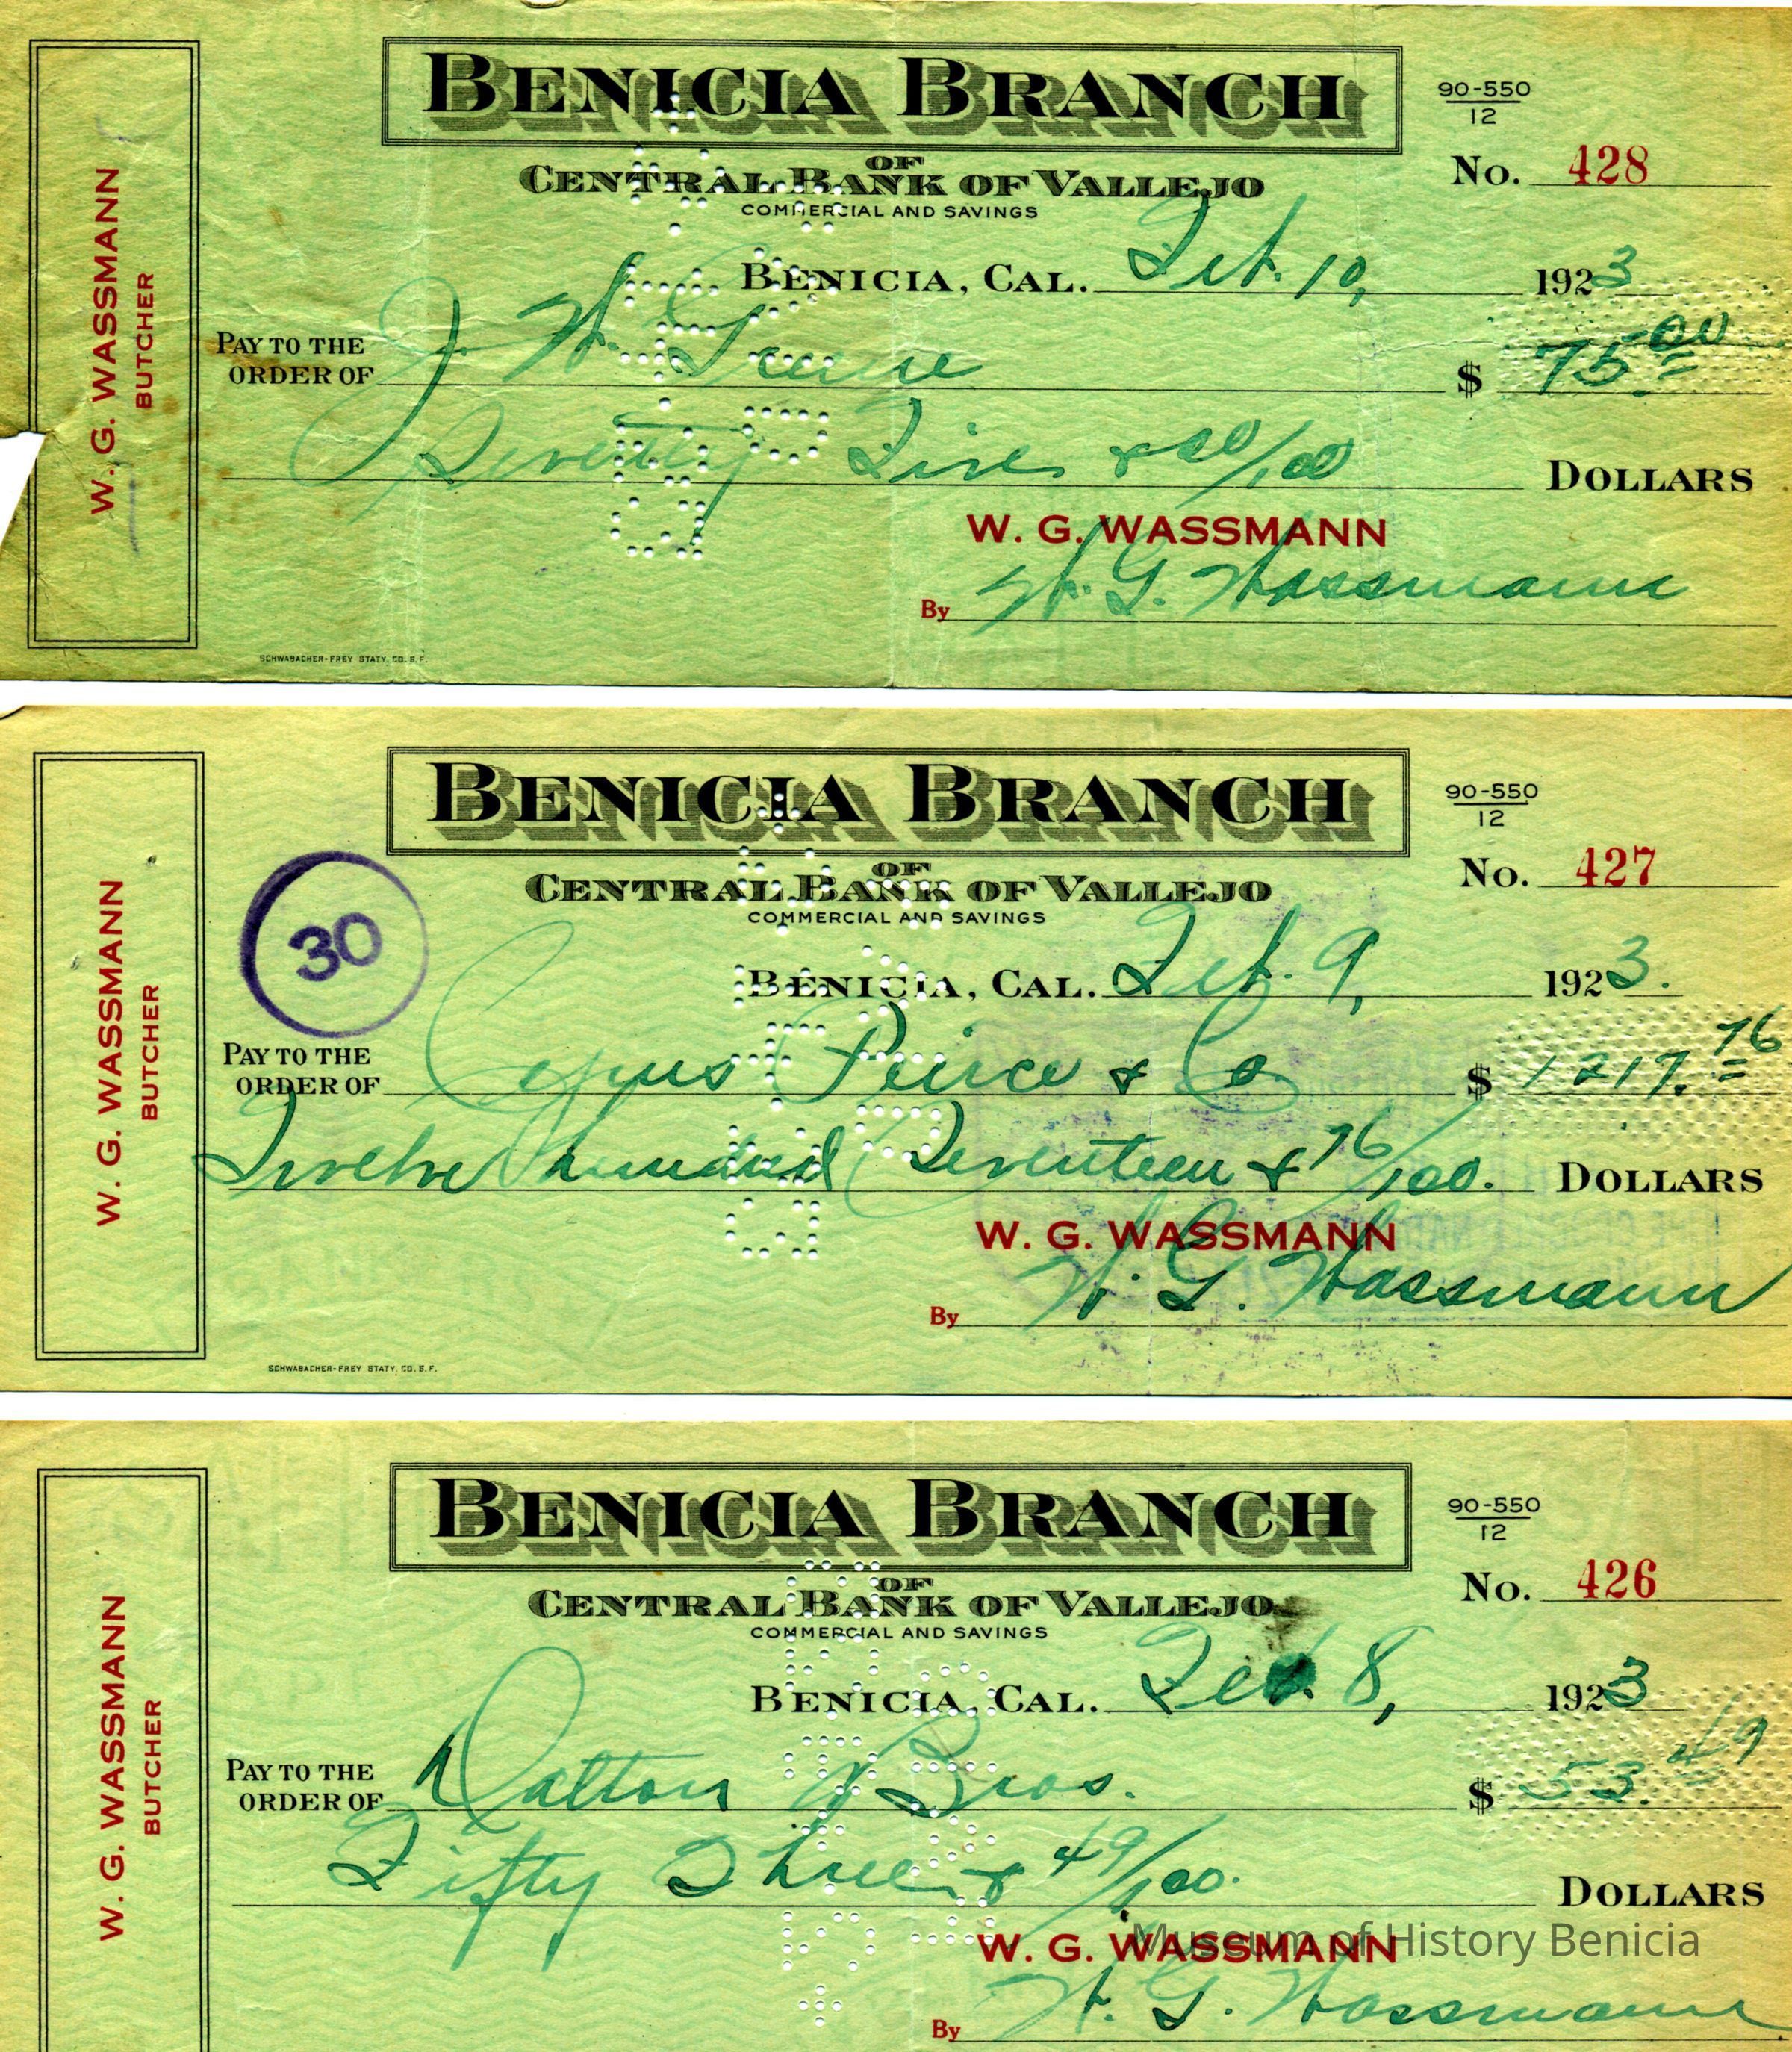 BENICIA BRANCH
OF
CENTRAL BANK OF VALLEJO
COMMERCIAL AND SAVINGS
90-550
12
No. 428
BENICIA, CAL. Feb. 10, 1923
W. G. WASSMANN
BUTCHER
PAY TO THE
ORDER OF J. W. $ 75 00
Seventy Five & 00/100 DOLLARS
W. G. WASSMANN
By W. G. Wassmann
SCHWABACHER-FREY STATY. CO. S. F.
BENICIA BRANCH
OF
CENTRAL BANK OF VALLEJO
COMMERCIAL AND SAVINGS
90-550
12
No. 427
30
BENICIA, CAL. Feb. 9, 1923.
W. G. WASSMANN
BUTCHER
PAY TO THE
ORDER OF Cyrus Peirce & Co $ 1217. 76
Twelve hundred Seventeen & 76/100. DOLLARS
W. G. WASSMANN
By W. G. Wassmann
SCHWABACHER-FREY STATY. CO. S. F.
BENICIA BRANCH
OF
CENTRAL BANK OF VALLEJO
COMMERCIAL AND SAVINGS
90-550
12
No. 426
BENICIA, CAL. Feb. 8, 1923
W. G. WASSMANN
BUTCHER
PAY TO THE
ORDER OF Dalton Bros. $ 53. 49
Fifty Three & 49/100. DOLLARS
Museum of History Benicia
W. G. WASSMANN
By W. G. Wassmann